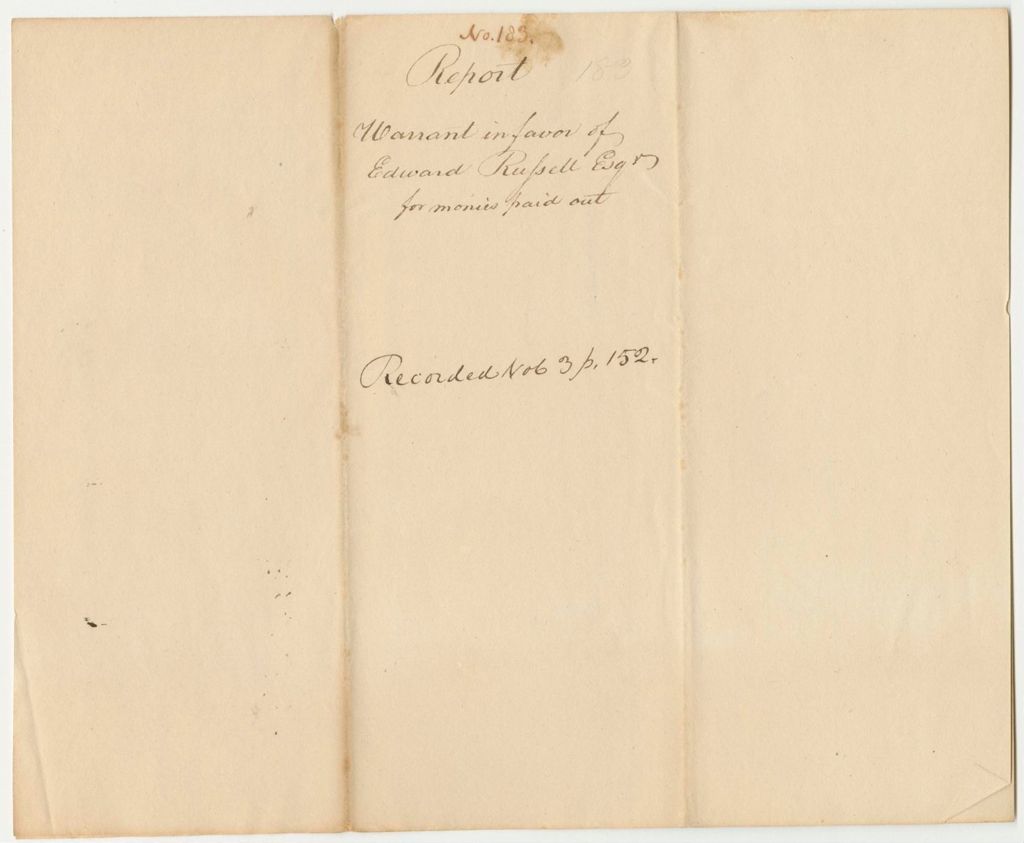 No. 183.
Report 183
Warrant in favor of
Edward Russell Esqr
for monies paid out
Recorded Vol 3 p. 152.